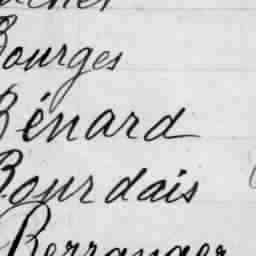 Bourges
Bénard
Bourdais
Berranger